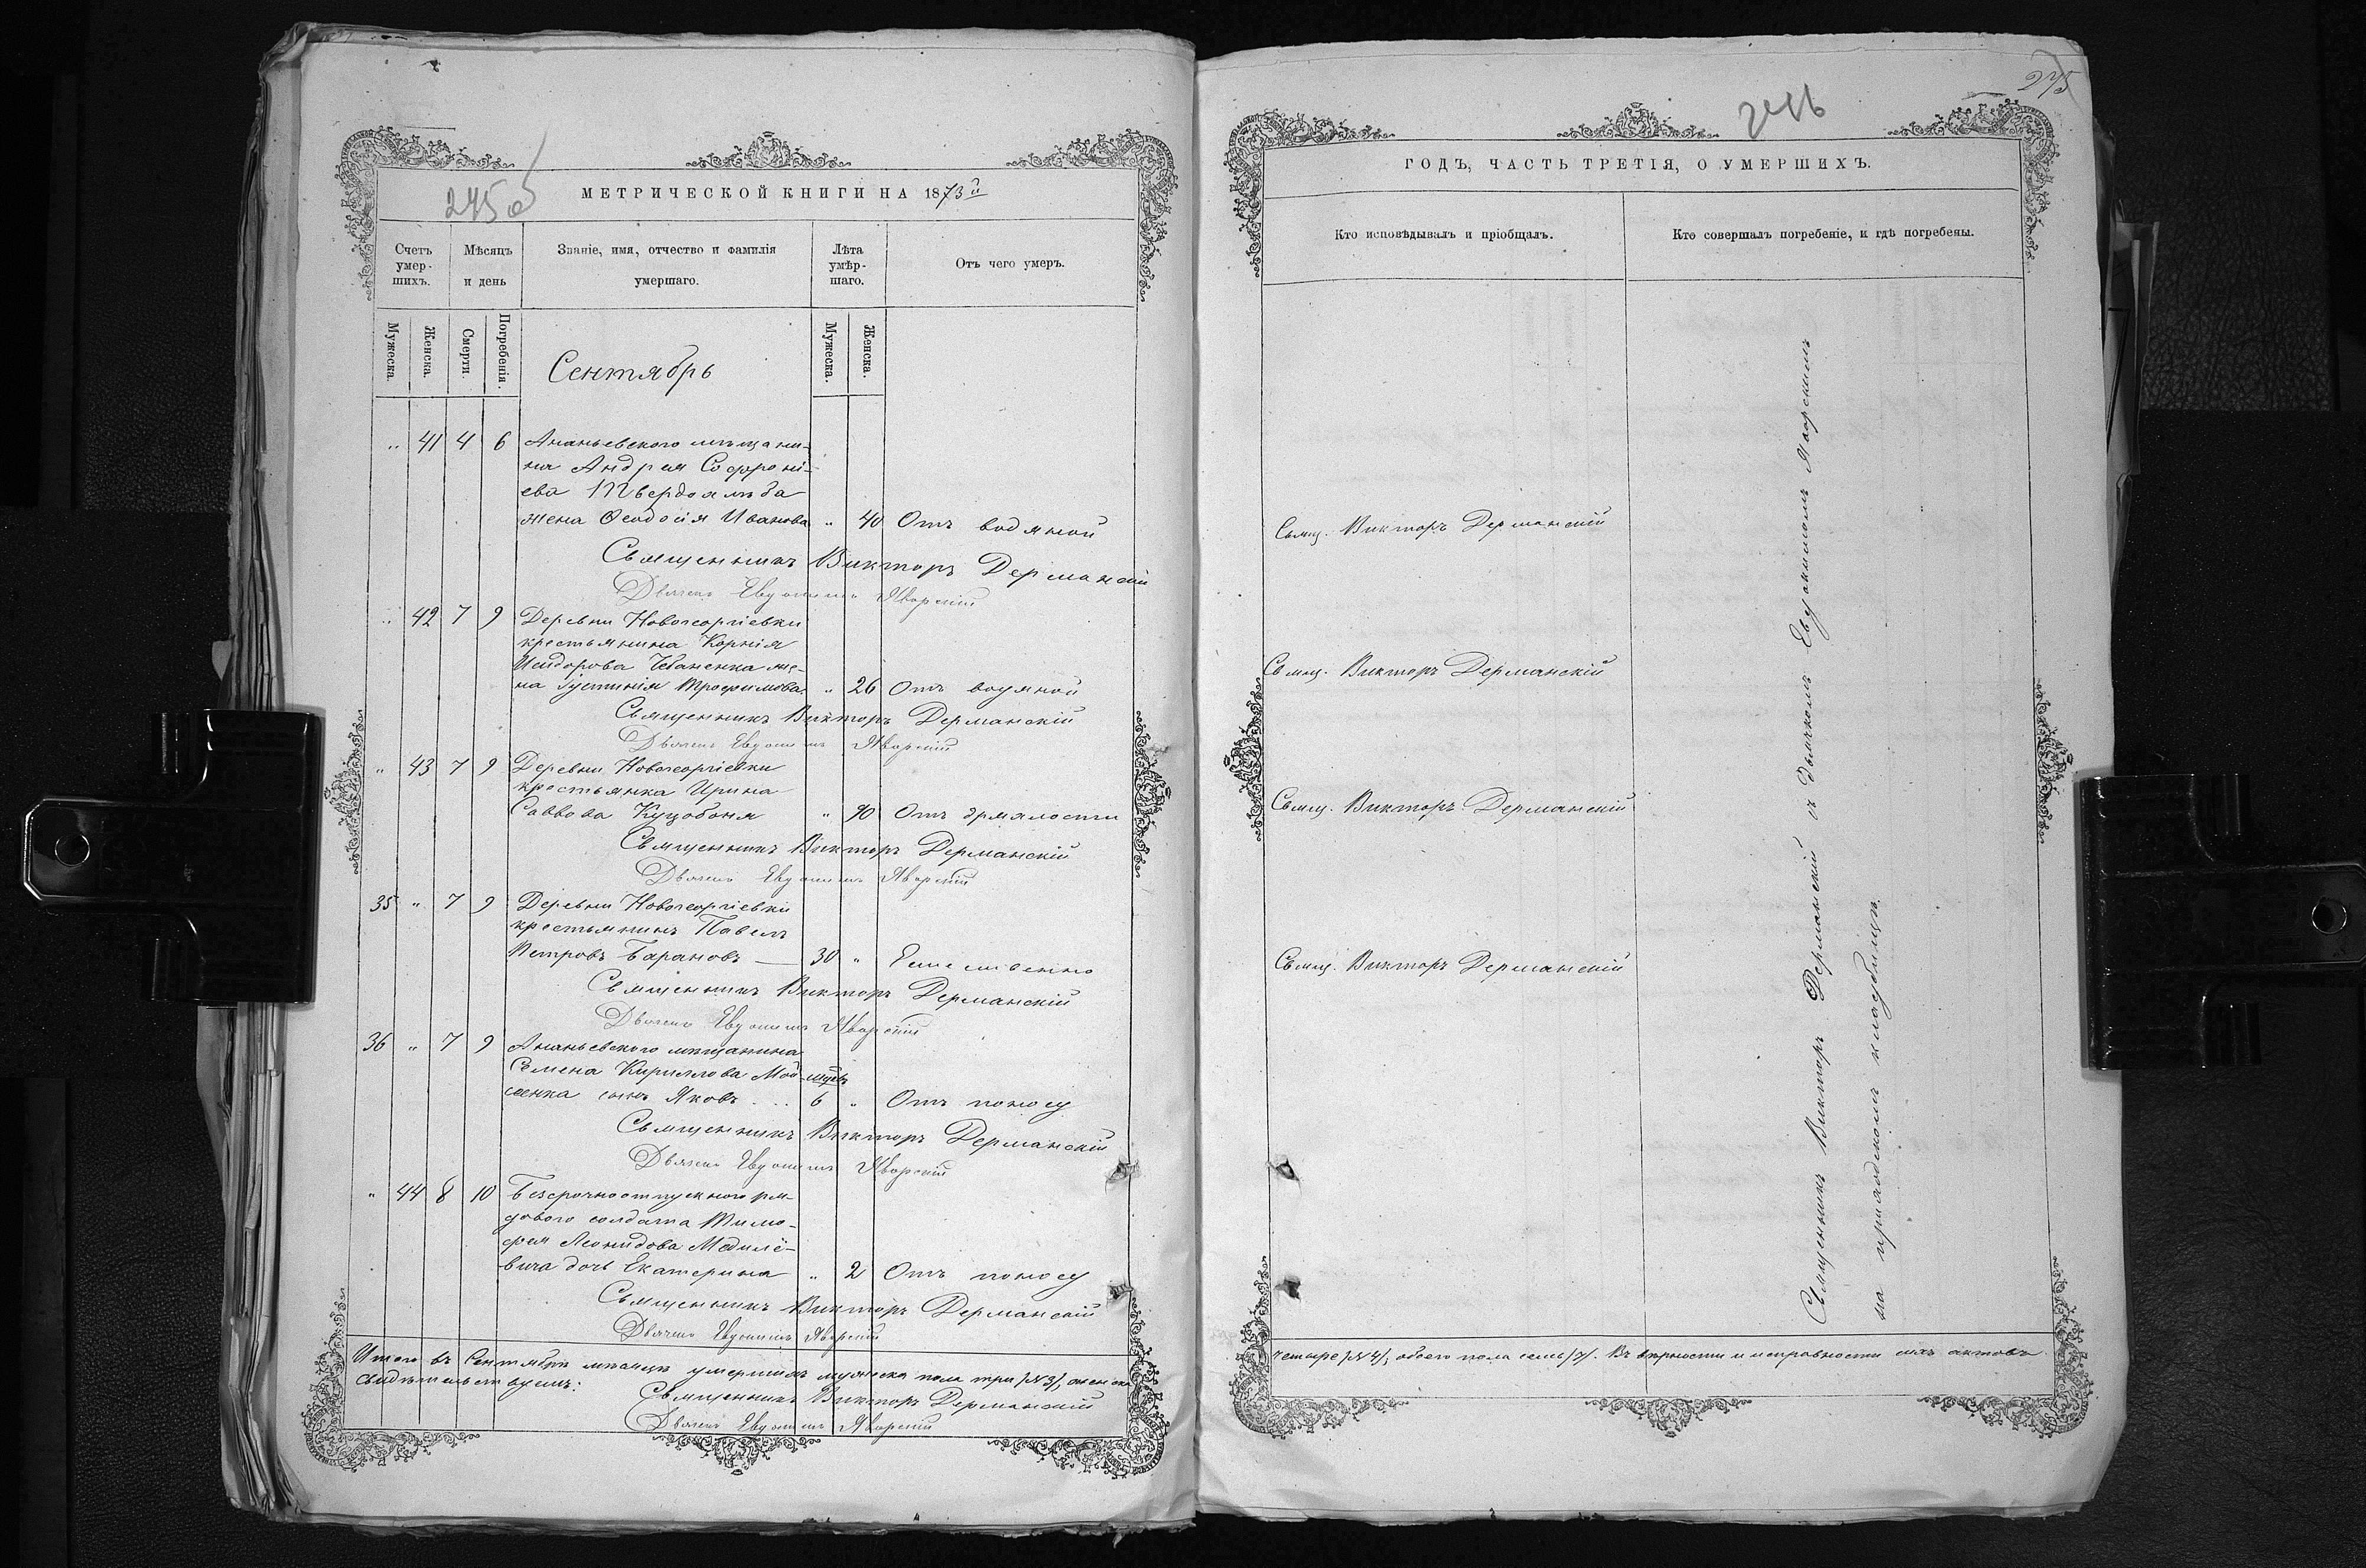 245 об
МЕТРИЧЕСКОЙ КНИГИ НА 1873й
Счетъ умер-шихъ.
Мѣсяцъ и день
Званіе, имя, отчество и фамилія умершаго.
Лѣта умѣр-шаго.
Отъ чего умеръ.
Мужеска.
Женска.
Смерти.
Погребенія.
Мужеска.
Женска.
Сентябрь
„ 41 4 6 Ананьевского мѣщани-
на Андрея Софроні-
ева Твердохлѣба
жена Ѳеодосія Иванова „ 40 Отъ водяной
Священникъ Викторъ Дерманскій
Дьячекъ Евѳимій Яворскій
„ 42 7 9 Деревни Новогеоргіевки
крестьянина Корнія
Исидорова Чебаненка же-
на Іустинія Трофимова „ 26 Отъ водяной
Священникъ Викторъ Дерманскій
Дьячекъ Яворскій
„ 43 7 9 Деревни Новогеоргіевки
крестьянка Ирина
Саввова Куцобоня „ 90 Отъ дряхлости
Священникъ Викторъ Дерманскій
Дьячекъ Яворскій
35 „ 7 9 Деревни Новогеоргіевки
крестьянинъ Павелъ
Петровъ Барановъ — 30 „ Естественно
Священникъ Викторъ Дерманскій
Дьячекъ Яворскій
36 „ 7 9 Ананьевского мѣщанина
Семена Кириллова Мой-
сеенка сынъ Яковъ 6 „ Отъ поносу
Священникъ Викторъ Дерманскій
Дьячекъ Яворскій
„ 44 8 10 Безсрочноотпускного ря-
дового солдата Тимо-
фея Леонидова
дочь Екатерина „ 2 Отъ поносу
Священникъ Викторъ Дерманскій
Дьячекъ Яворскій
Итого въ Сентябрѣ мѣсяцѣ умершихъ мужеска пола три /№3/, женска
свидѣтельствуемъ:
Священникъ Викторъ Дерманскій
Дьячекъ Яворскій
275
ГОДЪ, ЧАСТЬ ТРЕТІЯ, О УМЕРШИХЪ.
Кто исповѣдывалъ и пріобщалъ.
Кто совершалъ погребеніе, и гдѣ погребены.
Свящ. Викторъ Дерманскій
Свящ. Викторъ Дерманскій
Свящ. Викторъ Дерманскій
Свящ. Викторъ Дерманскій
Священникъ Викторъ Дерманскій съ дьячкомъ Яворскимъ
на приходскомъ кладбищѣ.
четыре /№4/, обоего пола семь /7/. Въ вѣрности и исправности сихъ актовъ